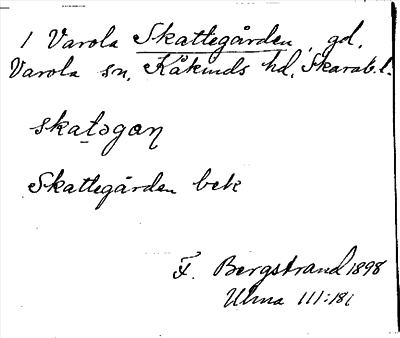 1 Varola Skattegården, gd,
Varola sn, Kåkinds hd, Skarab.l.
skatəgaɳ
Skattegården bek
F. Bergstrand 1898
Ulma 111:181